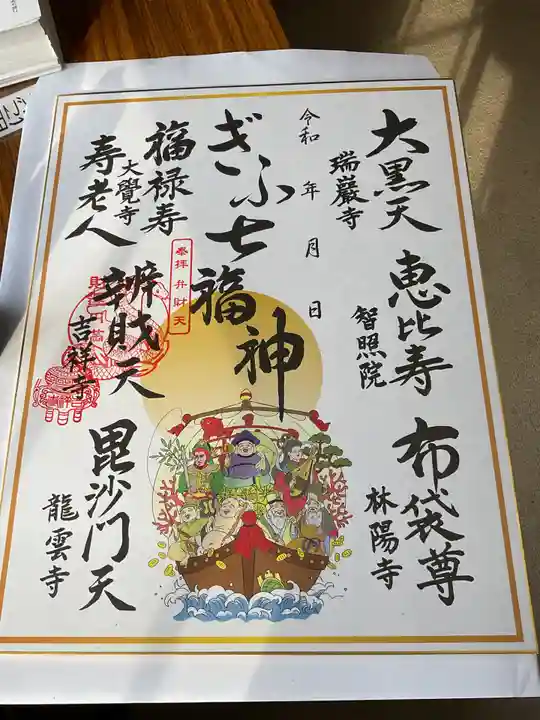 大黒天
瑞巖寺
恵比寿
智照院
布袋尊
林陽寺
令和 年 月 日
ぎふ七福神
福禄寿
大覺寺
寿老人
奉拝弁財天
辨財天
吉祥寺
毘沙門天
龍雲寺